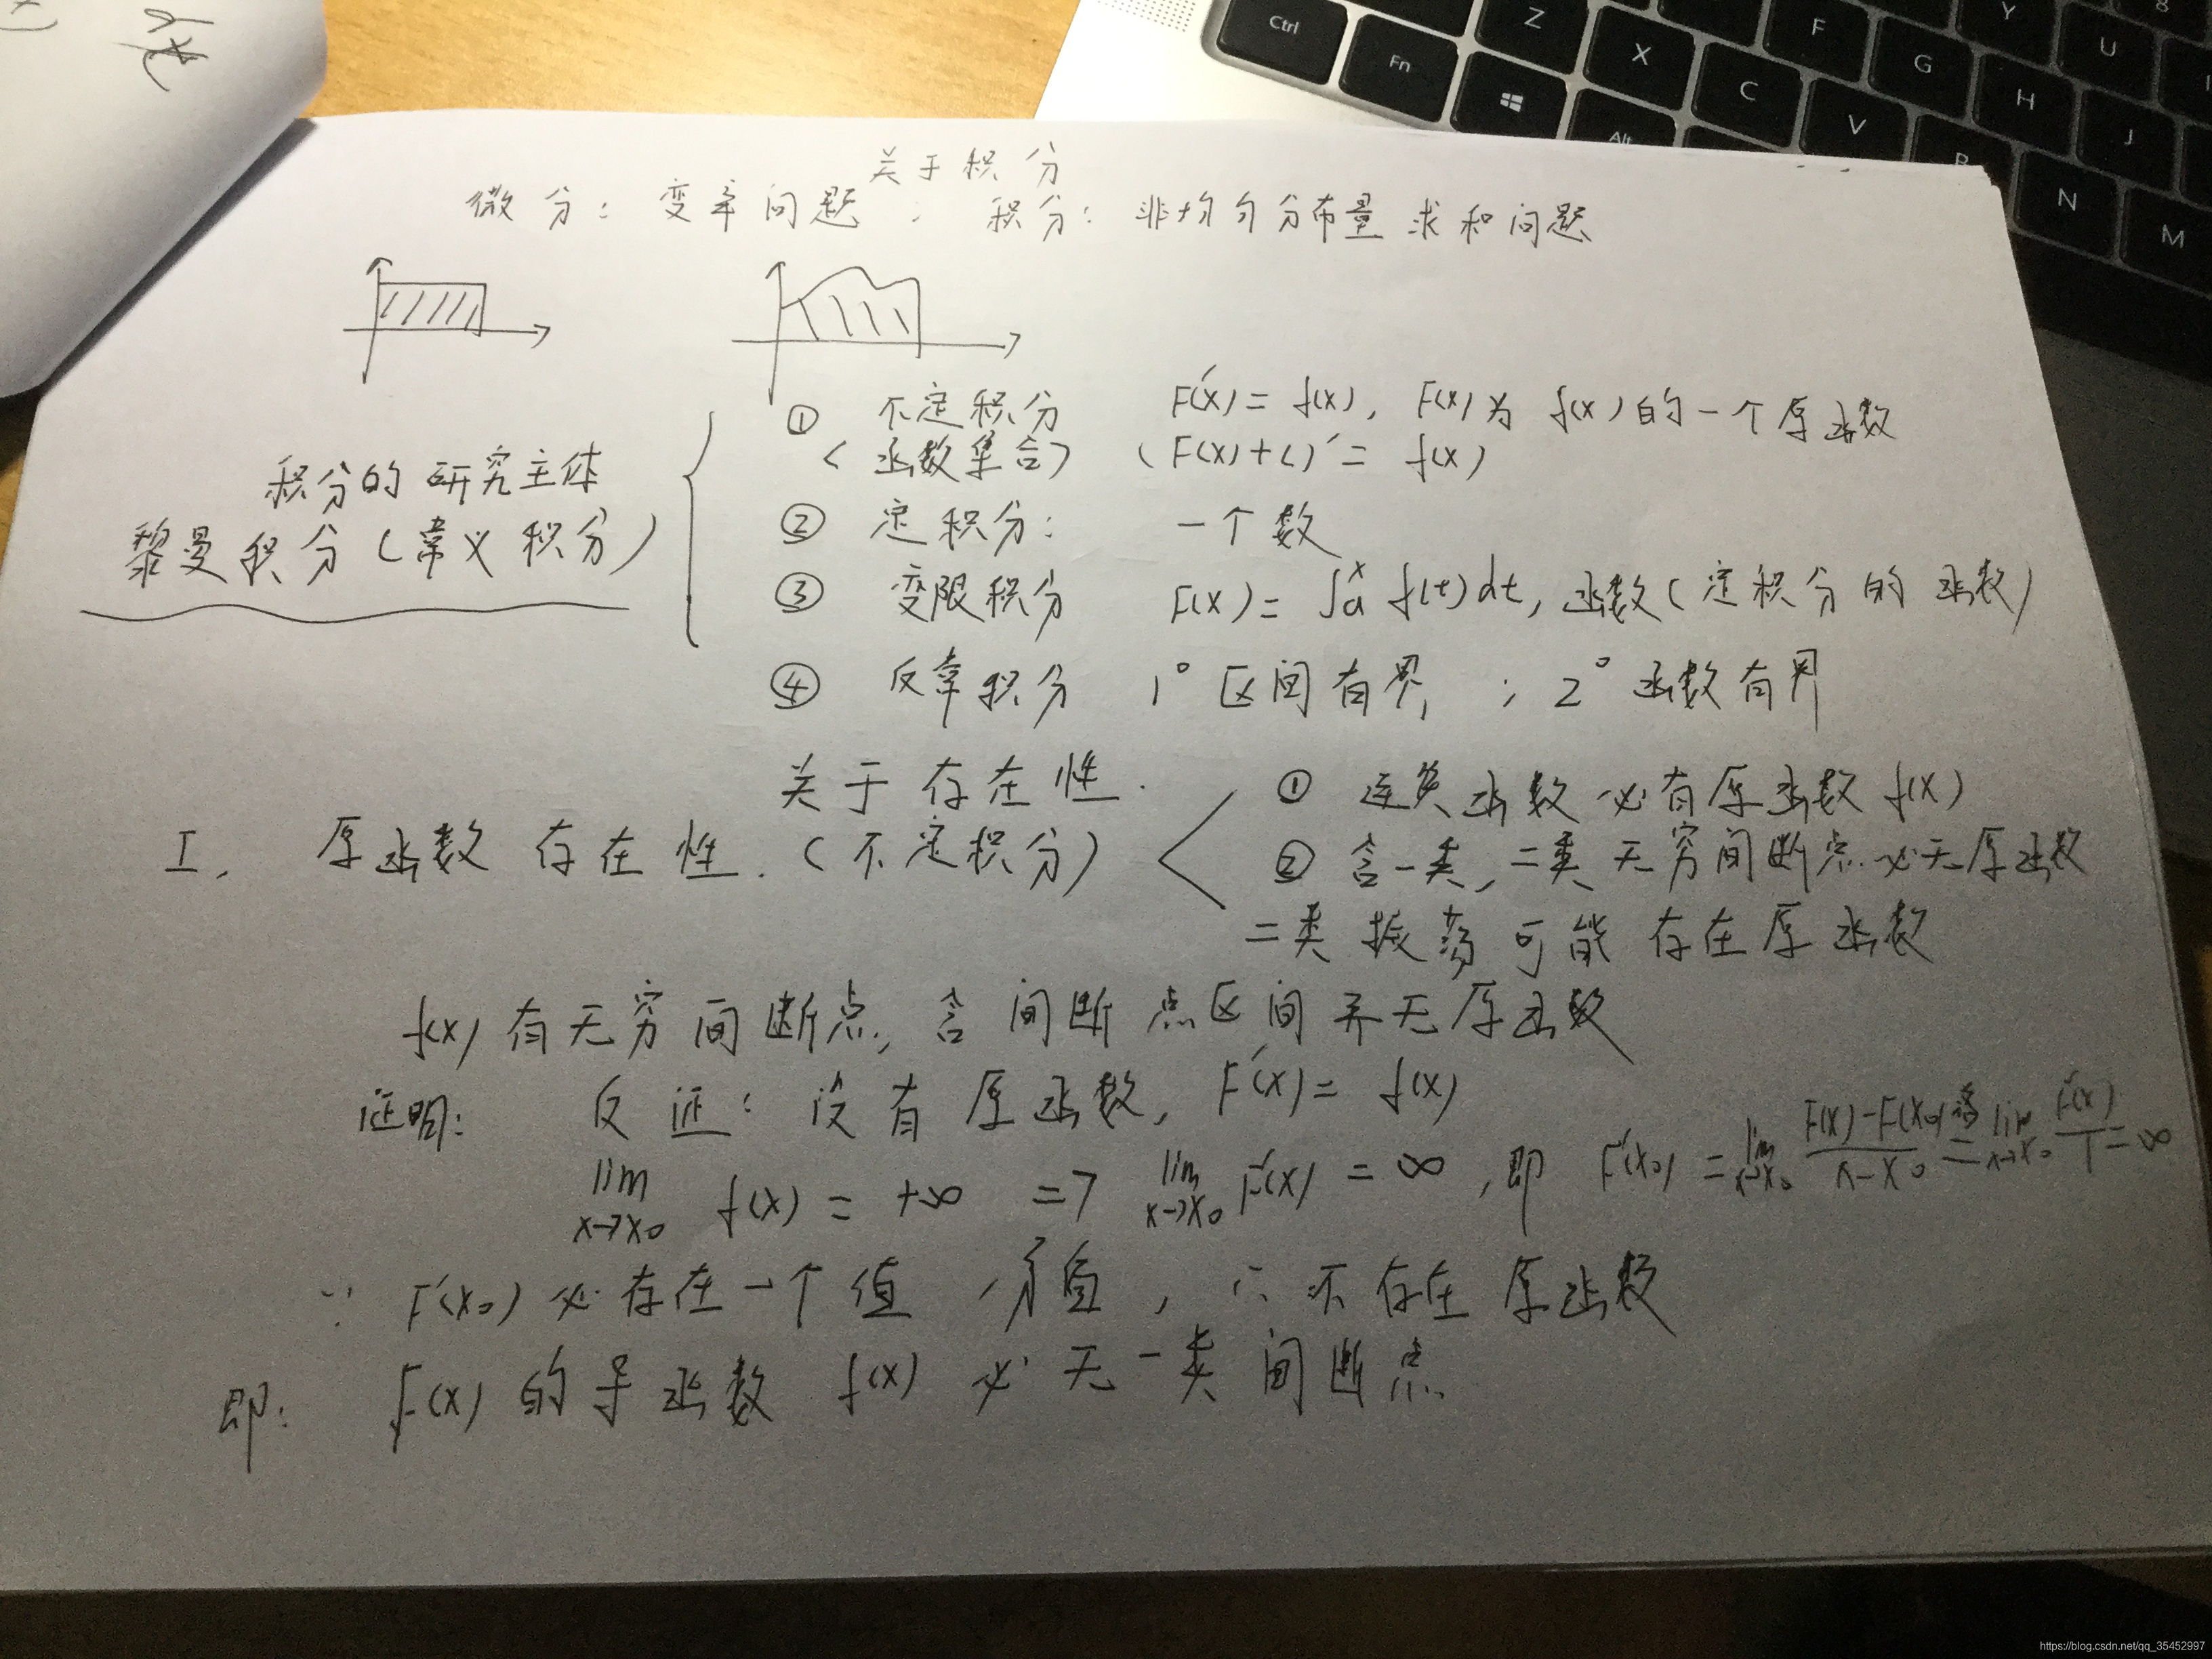 关于积分
微分：变率问题，积分：非均匀分布量求和问题
积分的研究主体
黎曼积分（常义积分）
① 不定积分 F'(x) = f(x), F(x)为 f(x)的一个原函数
（函数集合） (F(x)+C)' = f(x)
② 定积分： 一个数
③ 变限积分 F(x) = ∫ₐˣ f(t)dt, 函数（定积分的函数）
④ 反常积分 1° 区间有界, ; 2° 函数有界
关于存在性.
I. 原函数存在性.（不定积分）
① 连续函数必有原函数 f(x)
② 含一类, 二类无穷间断点必无原函数
二类振荡可能存在原函数
f(x)有无穷间断点, 含间断点区间并无原函数
证明： 反证：没有原函数, F'(x) = f(x)
lim x→x₀ f(x) = +∞ => lim x→x₀ F'(x) = ∞ ,即 F'(x₀) = lim x→x₀ (F(x)-F(x₀))/(x-x₀) = lim x→x₀ F'(x)/1 = ∞
∵ F'(x₀)必存在一个值 , ∴ 不存在原函数
即： F(x)的导函数 f(x) 必无一类间断点
Ctrl
Fn
Alt
Z
X
C
V
B
N
M
F
G
H
J
Y
U
8
https://blog.csdn.net/qq_35452997